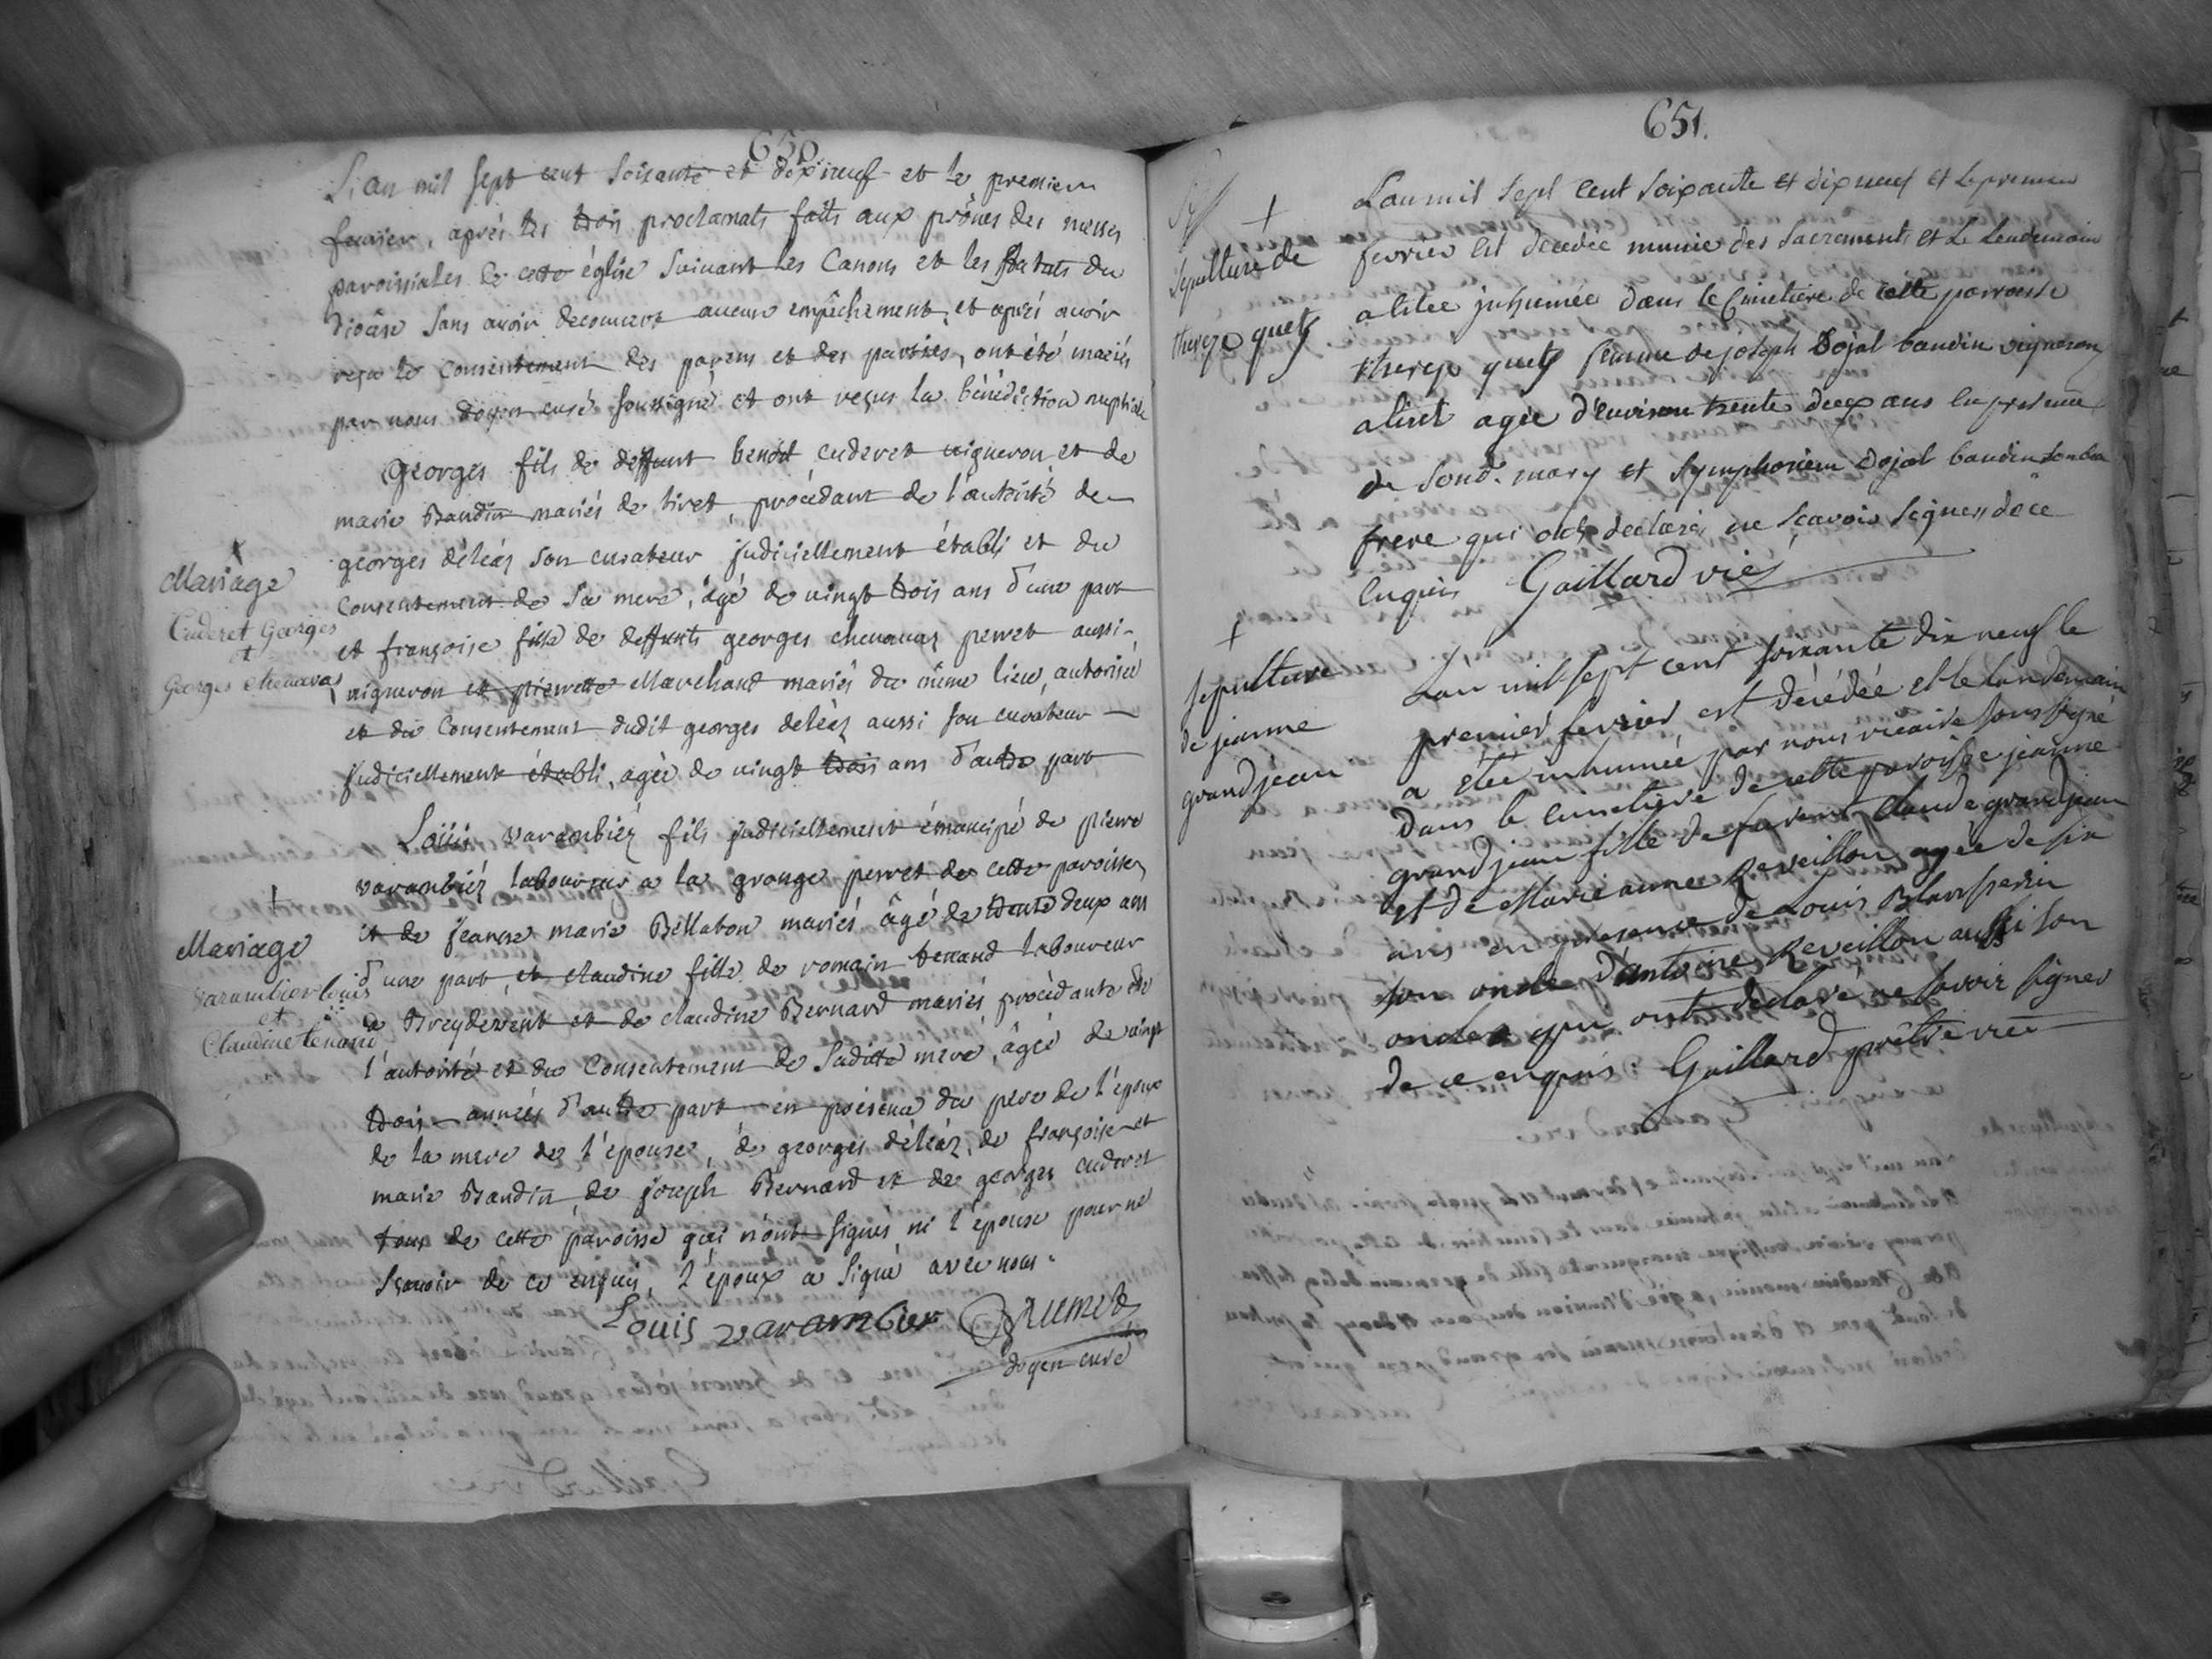 650.
L'an mil sept cent soixante et dix neuf et le premier
fevrier, après les trois proclamats faits aux prônes des messes
paroissiales de cette église suivant les Canons et les statuts du
diocèse sans avoir decouvert aucun empêchement, et après avoir
reçu le consentement des parens et des parties, ont été mariés
par nous doyen curé soussigné et ont reçus la bénédiction nuptiale
Georges fils de deffunt benoit cuderet vigneron et de
marie Baudin mariés de tiret, procédant de l'autorité de
georges déléaz son curateur judiciellement établi et du
Mariage
Cuderet Georges
et
Georges chenavas
consentement de sa mere, âgé de vingt trois ans d'une part
et françoise fille de deffunts georges chenavaz perret aussi
vigneron et pierrette Marchand mariés du même lieu, autorisée
et du Consentement dudit georges deléaz aussi son curateur
judiciellement établi, agée de vingt trois ans d'autre part
Loüis varambiéz fils judiciellement émancipé de pierre
varambiéz laboureur a la grange perret de cette paroisse
et de jeanne marie Bellaton mariés âgé de trente deux ans
Mariage
varambier louis
et
Claudine tenand
d'une part, et claudine fille de romain tenand laboureur
a Breydevent et de claudine Bernard mariés, procédante de
l'autorité et du Consentement de saditte mere, âgée de vingt
trois années d'autre part en présence du pere de l'époux
de la mere de l'épouse, de georges déléaz, de françoise et
marie Baudin, de joseph Bernard et de georges cuderet
tous de cette paroisse qui n'ont signés ni l'épouse pour ne
sçavoir de ce enquis, l'époux a signé avec nous.
Louis varambier Brumet
doyen curé
651.
Sepulture de
thereze quet
L'an mil sept cent soixante et dix neuf et le premier
fevrier est decedée munie des sacrements et le lendemain
a étée inhumée dans le Cimetiere de cette parroisse
thereze quet femme de joseph Dojat baudin vigneron
a tiret agée d'environ trente deux ans en presence
de sond. mary et symphorien dojat baudin son beau
frere qui ont declaré ne sçavoir signer de ce
enquis Gaillard vic
sepulture
de jeanne
grandjean
L'an mil sept cent soixante dix neuf le
premier fevrier est décédée et le lendemain
a été inhumée par nous vicaire soussigné
dans le cimetière de cette paroisse jeanne
grandjean fille de Claude grandjean
et de Marie anne Reveillon agée de six
ans en presence de Louis Blanperrin
son oncle d'antoine Reveillon aussi son
oncle qui ont declaré ne savoir signer
de ce enquis. Gaillard prêtre vic